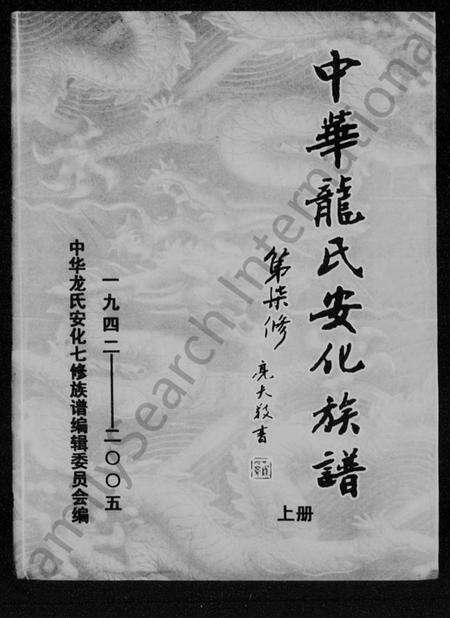 中華龍氏安化族譜
第柒修
亮夫敬書
上册
一九四二——二〇〇五
中华龙氏安化七修族谱编辑委员会编
amilySearch International